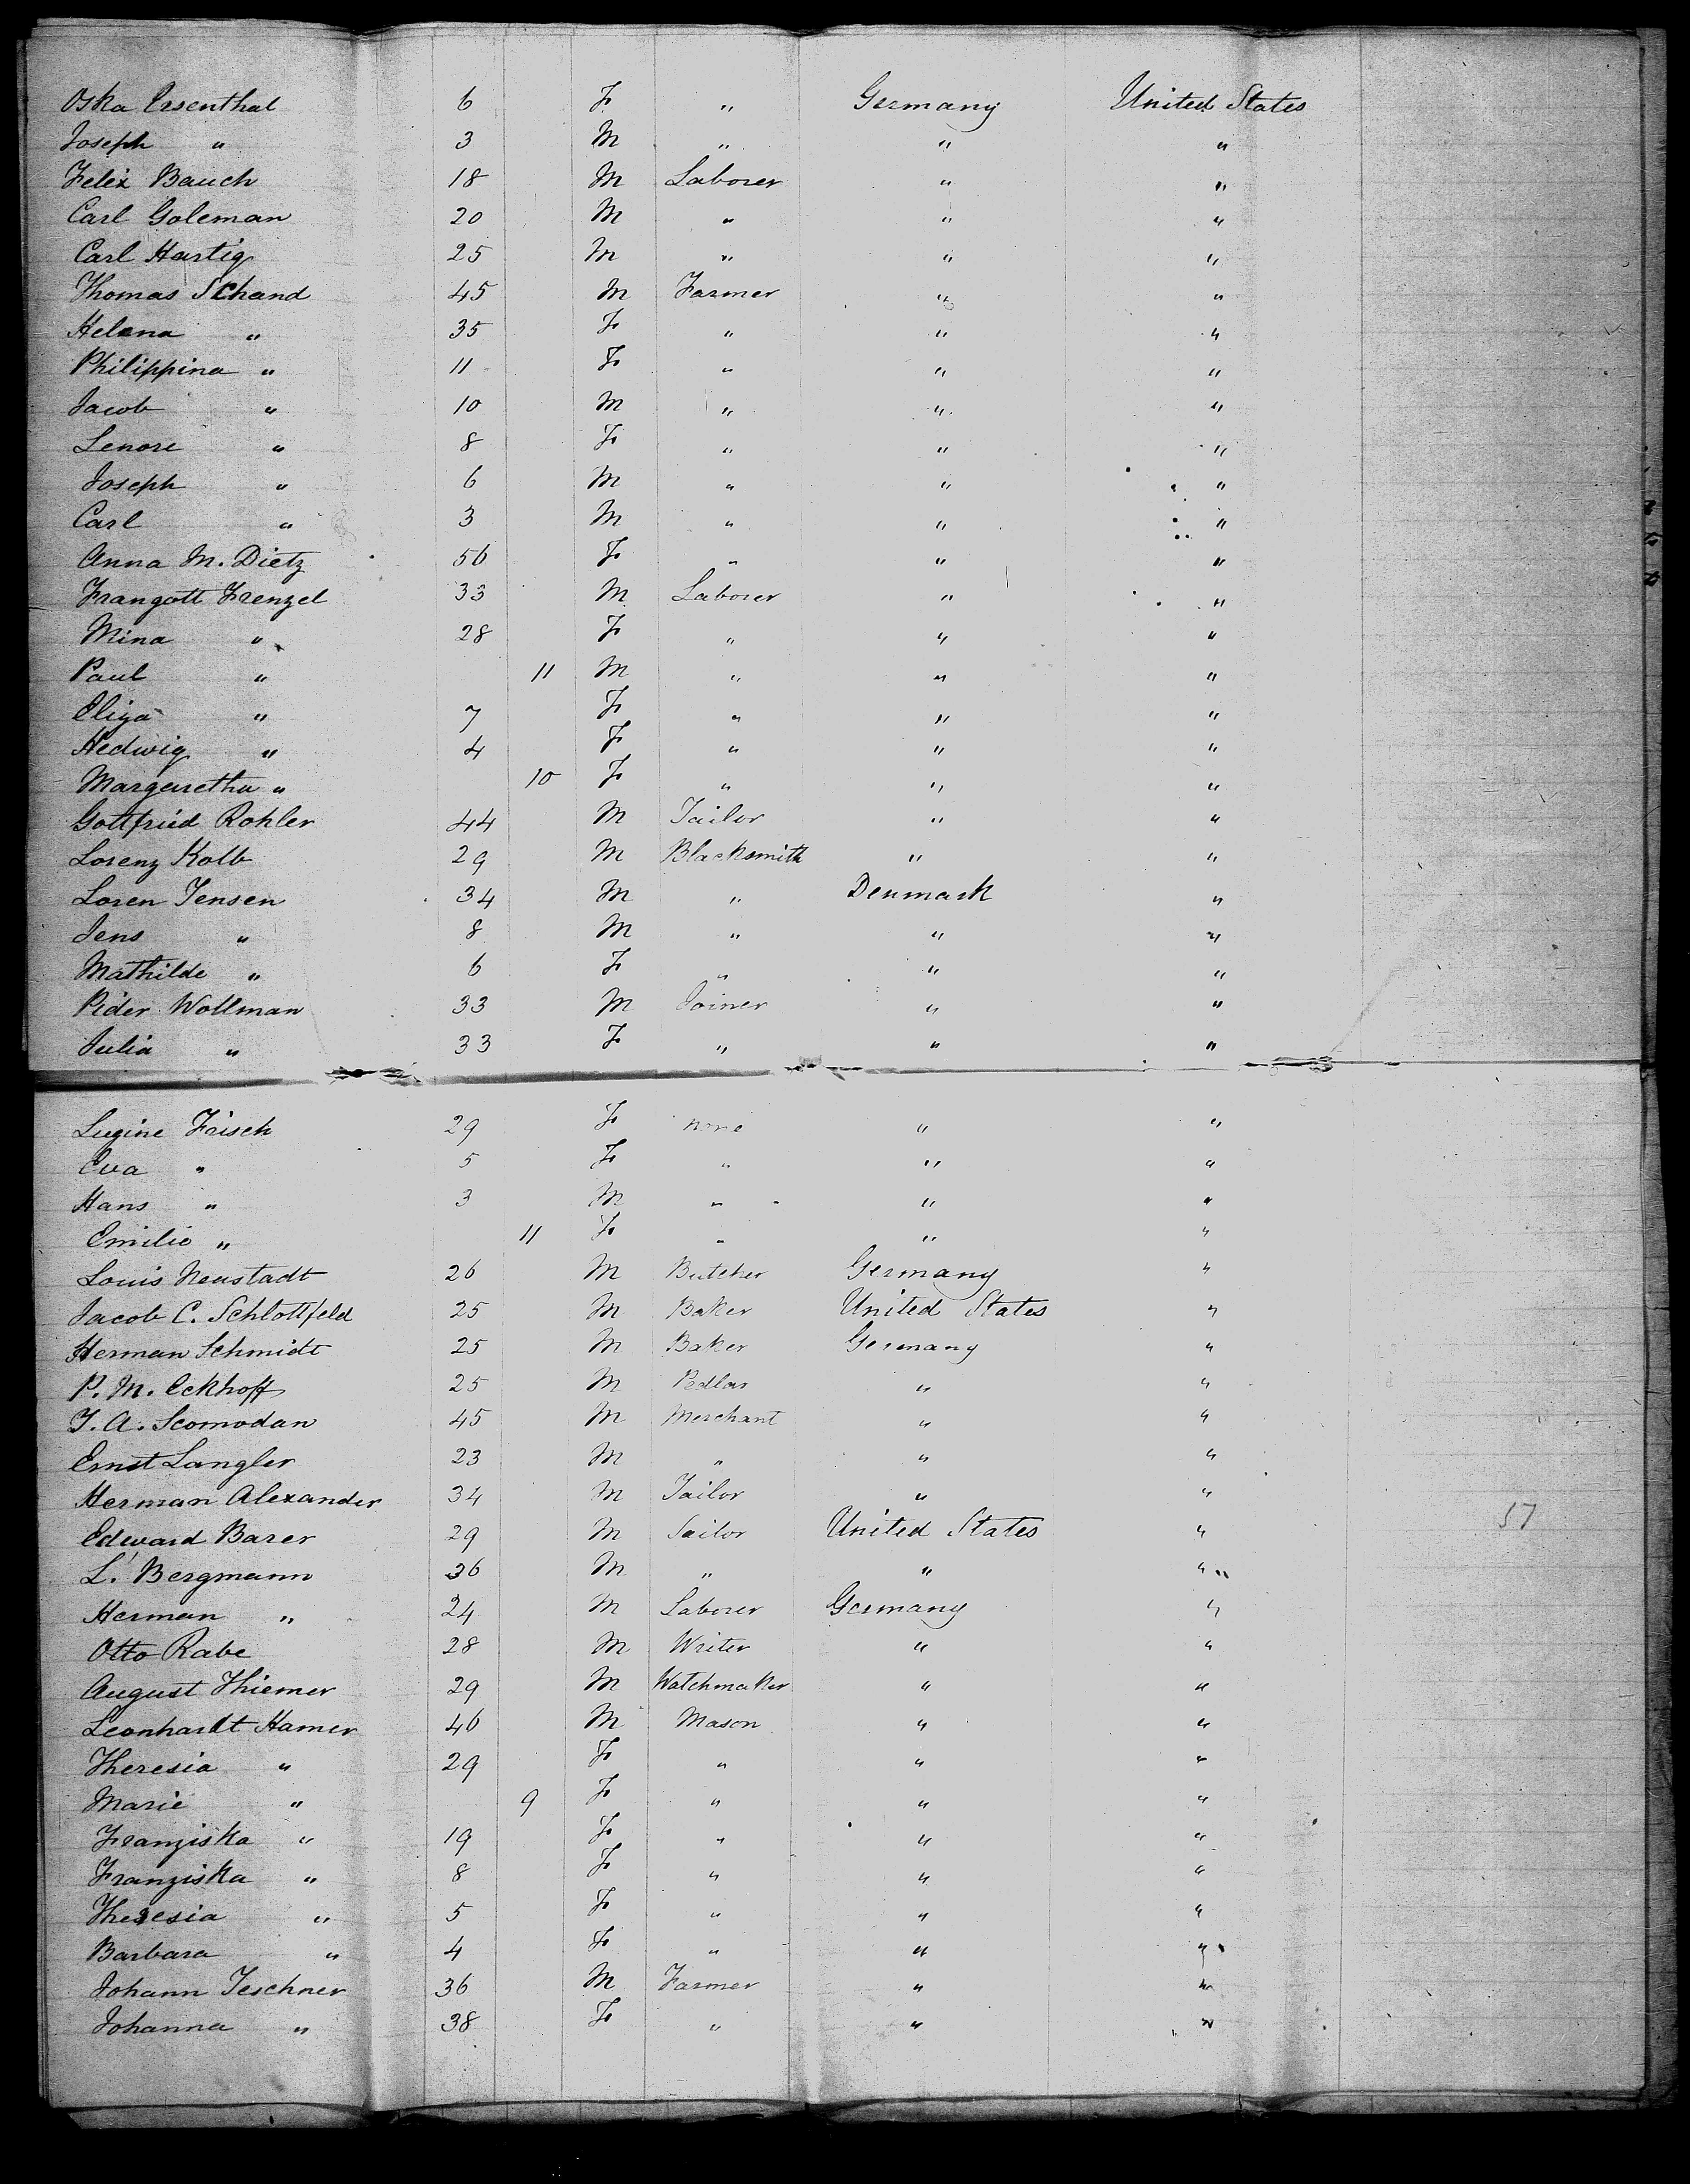 Oska Ersenthal 6 F " Germany United States
Joseph " 3 M " " "
Felix Bauch 18 M Laborer " "
Carl Goleman 20 M " " "
Carl Hartig 25 M " " "
Thomas Schand 45 M Farmer " "
Helena " 35 F " " "
Philippina " 11 F " " "
Jacob " 10 M " " "
Lenore " 8 F " " "
Joseph " 6 M " " "
Carl " 3 M " " "
Anna M. Dietz 56 F " " "
Frangott Frenzel 33 M Laborer " "
Mina " 28 F " " "
Paul " 11 M " " "
Eliza " 7 F " " "
Hedwig " 4 F " " "
Margaretha " 10 F " " "
Gottfried Rohler 44 M Tailor " "
Lorenz Kolb 29 M Blacksmith " "
Loren Jensen 34 M " Denmark "
Jens " 8 M " " "
Mathilde " 6 F " " "
Pider Wollman 33 M Joiner " "
Julia " 33 F " " "
Lugine Faisch 29 F none " "
Eva " 5 F " " "
Hans " 3 M " " "
Emilie " 11 F " " "
Louis Neustadt 26 M Butcher Germany "
Jacob C. Schlottfeld 25 M Baker United States "
Herman Schmidt 25 M Baker Germany "
P. M. Eckhoff 25 M Pedlar " "
J. A. Scomodan 45 M Merchant " "
Ernst Langler 23 M " " "
Herman Alexander 34 M Tailor " "
Edward Barer 29 M Sailor United States "
L. Bergmann 36 M " " "
Herman " 24 M Laborer Germany "
Otto Rabe 28 M Writer " "
August Thiemer 29 M Watchmaker " "
Leonhardt Hamer 46 M Mason " "
Theresia " 29 F " " "
Marie " 9 F " " "
Franziska " 19 F " " "
Franziska " 8 F " " "
Theresia " 5 F " " "
Barbara " 4 F " " "
Johann Teschner 36 M Farmer " "
Johanna " 38 F " " "
57